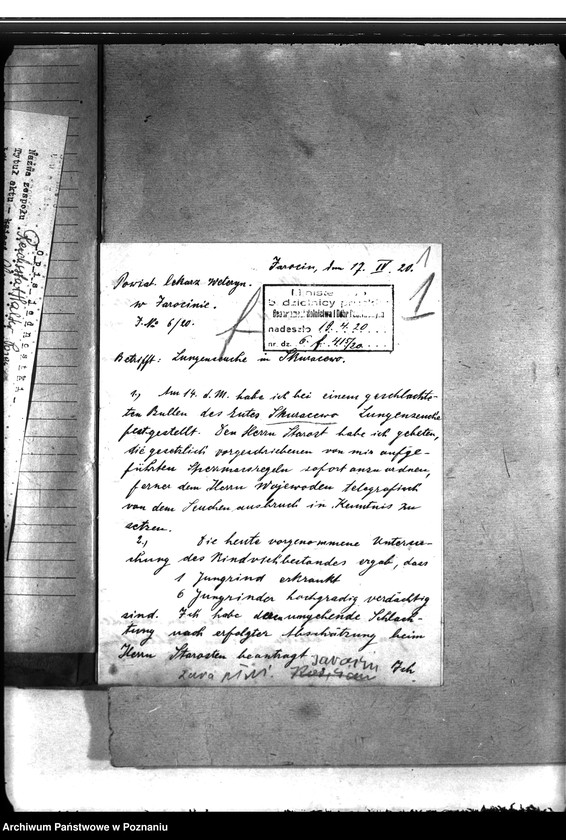 Jarocin, den 17. IV. 20.
1
1
Powiat. lekarz weteryn.
w Jarocinie.
J. No 6/20.
Minister
b. dzielnicy pruskiej
nadeszło 19.4.20
nr. dz. 6. f. 415/20
Betrifft: Lungenseuche in Skoraczewo.
1.) Am 14. d. M. habe ich bei einem geschlachte-
ten Bullen des Gutes Skoraczewo Lungenseuche
festgestellt. Den Herrn Starost habe ich gebeten,
die gesetzlich vorgeschriebenen von mir aufge-
führten Sperrmassregeln sofort anzuordnen,
ferner dem Herrn Wojewoden telegrafisch
von dem Seuchenausbruch in Kenntnis zu
setzen.
2.) Die heute vorgenommene Untersu-
chung des Rindviehbestandes ergab, dass
1 Jungrind erkrankt
6 Jungrinder hochgradig verdächtig
sind. Ich habe die umgehende Schlach-
tung nach erfolgter Abschätzung beim
Herrn Starosten beantragt.
Ich
Nazwa zespołu
Tytuł aktu
Archiwum Państwowe w Poznaniu